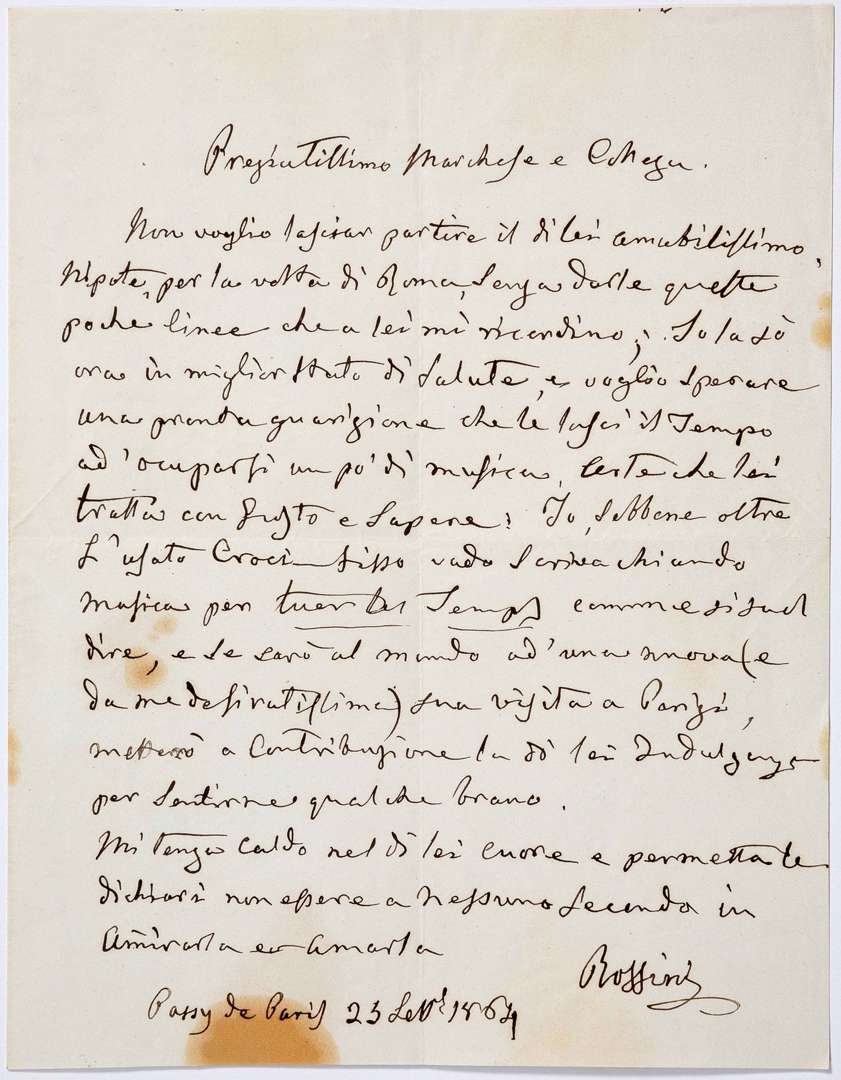 Pregiatissimo Marchese e Collega.
Non voglio lasciar partire il di lei amabilissimo
Nipote, per la volta di Roma, senza darle queste
poche linee che a lei mi ricordino; Io la sò
ora in miglior stato di Salute, e voglio sperare
una pronta guarigione che le lasci il Tempo
ad'ocuparsi un pò di musica, Arte che lei
tratta con Gusto e Sapere! Io, sebbene oltre
l'usato vado Scrivacchiando
musica per tuer les Temps comme si suol
dire, e se sarò al mondo ad'una nuova (e
da me desiratissima) sua visita a Parigi,
metterò a Contribuzione la di lei Indulgenza
per Sentirne qualche brano.
Mi tenga Caldo nel di lei Cuore e permetta le
dichiari non essere a Nessuno Secondo in
Amirarla ed Amarla
Rossini
Passy de Paris 23 Sett. 1864